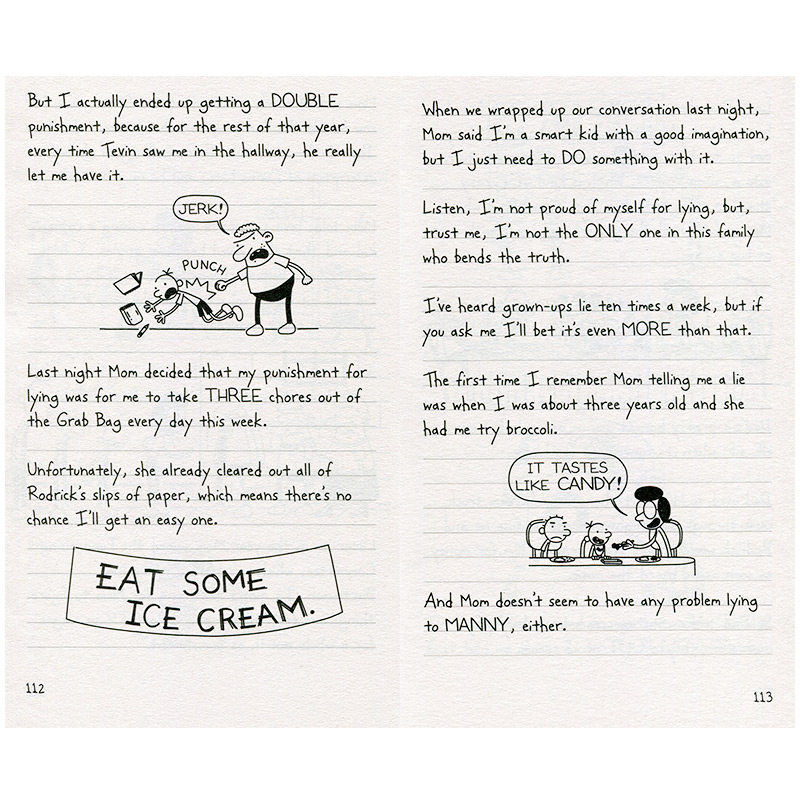 But I actually ended up getting a DOUBLE
punishment, because for the rest of that year,
every time Tevin saw me in the hallway, he really
let me have it.
JERK!
PUNCH
Last night Mom decided that my punishment for
lying was for me to take THREE chores out of
the Grab Bag every day this week.
Unfortunately, she already cleared out all of
Rodrick's slips of paper, which means there's no
chance I'll get an easy one.
EAT SOME
ICE CREAM.
112
When we wrapped up our conversation last night,
Mom said I'm a smart kid with a good imagination,
but I just need to DO something with it.
Listen, I'm not proud of myself for lying, but,
trust me, I'm not the ONLY one in this family
who bends the truth.
I've heard grown-ups lie ten times a week, but if
you ask me I'll bet it's even MORE than that.
The first time I remember Mom telling me a lie
was when I was about three years old and she
had me try broccoli.
IT TASTES
LIKE CANDY!
And Mom doesn't seem to have any problem lying
to MANNY, either.
113